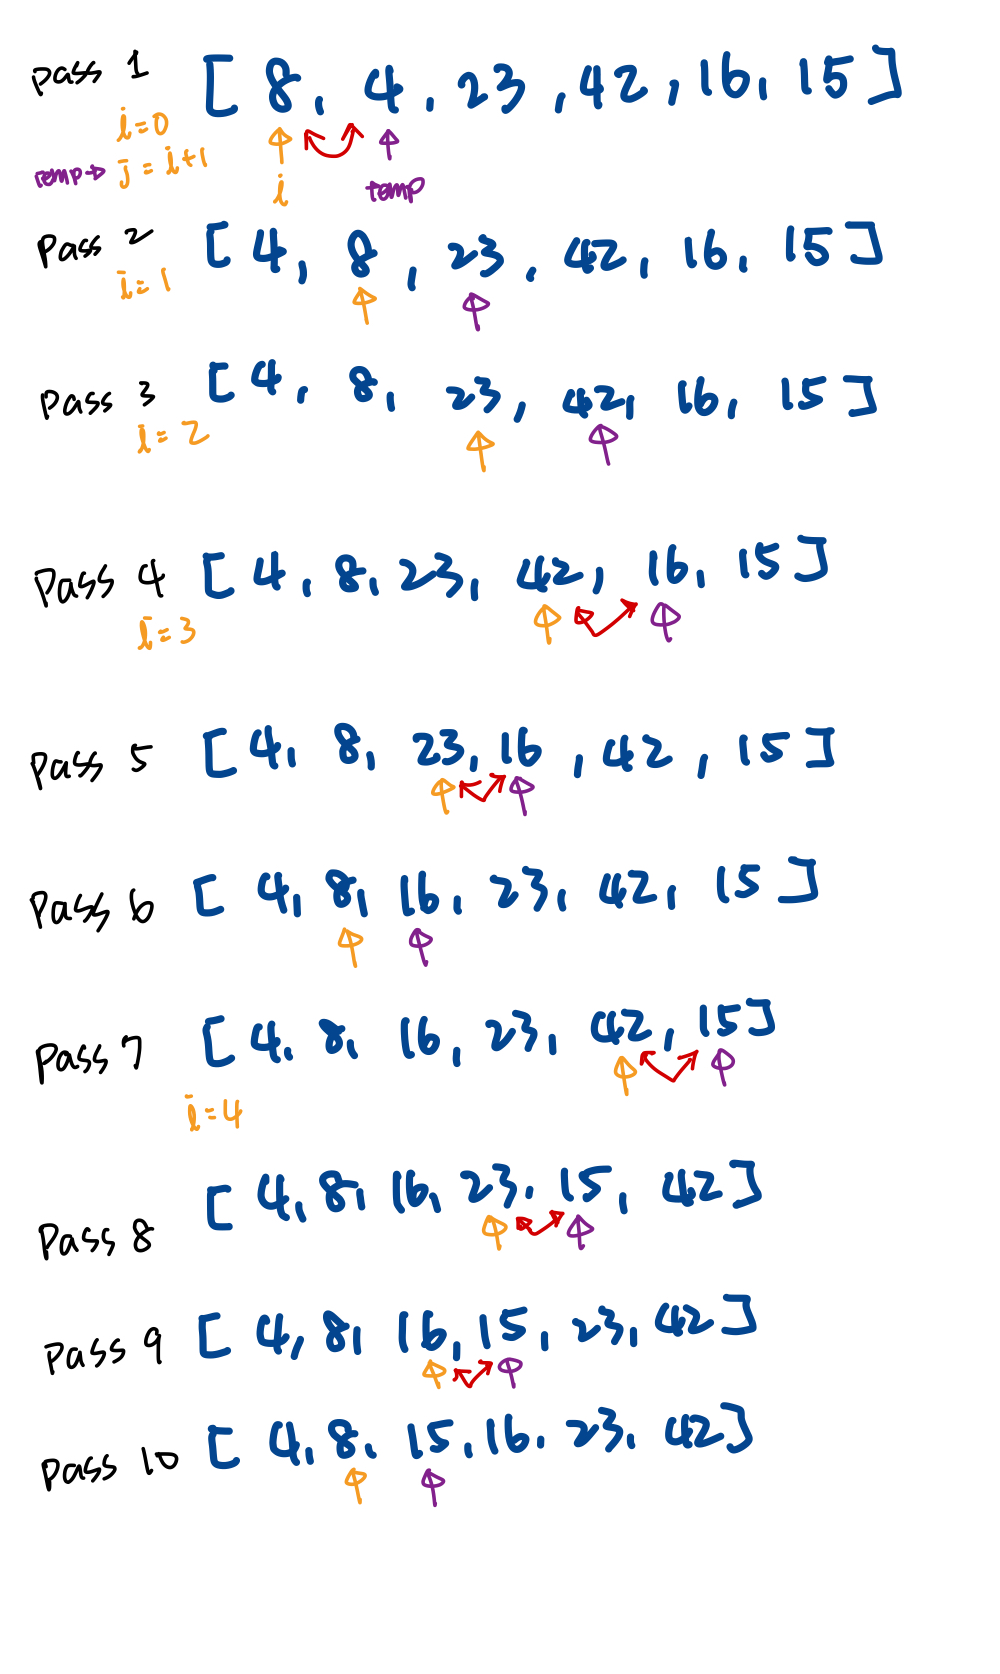 Pass 1 [ 8, 4, 23, 42, 16, 15 ]
i=0
temp→ j = i+1
i temp
Pass 2 [ 4, 8, 23, 42, 16, 15 ]
i=1
Pass 3 [ 4, 8, 23, 42, 16, 15 ]
i=2
Pass 4 [ 4, 8, 23, 42, 16, 15 ]
i=3
Pass 5 [ 4, 8, 23, 16, 42, 15 ]
Pass 6 [ 4, 8, 16, 23, 42, 15 ]
Pass 7 [ 4, 8, 16, 23, 42, 15 ]
i=4
Pass 8 [ 4, 8, 16, 23, 15, 42 ]
Pass 9 [ 4, 8, 16, 15, 23, 42 ]
Pass 10 [ 4, 8, 15, 16, 23, 42 ]